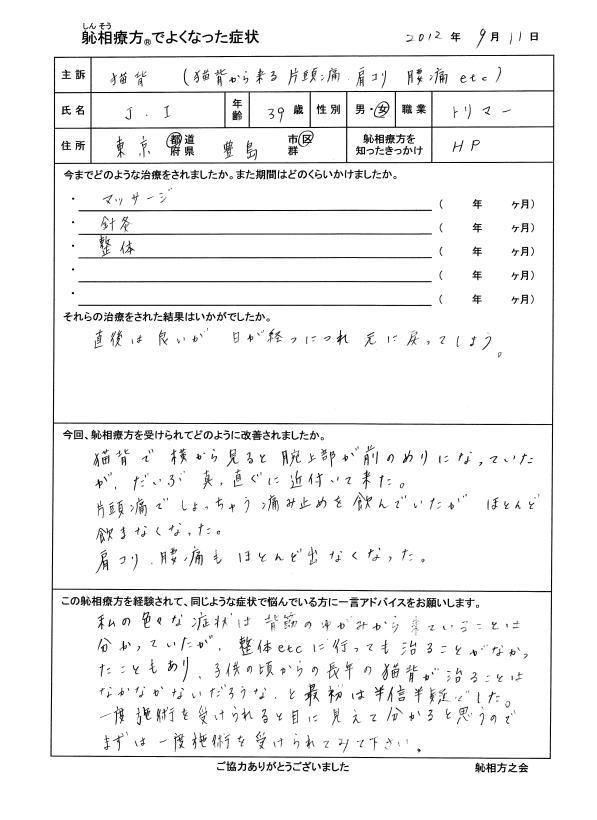 しん そう
躰相療方®でよくなった症状 2012 年 9月 11日
主訴 猫背 (猫背から来る片頭痛.肩コリ 腰痛 etc)
氏名 J.I 年齢 39歳 性別 男・女 職業 トリマー
住所 東京 都道府県 豊島 市区群 躰相療方を知ったきっかけ HP
今までどのような治療をされましたか。また期間はどのくらいかけましたか。
・ マッサージ ( 年 ヶ月)
・ 針灸 ( 年 ヶ月)
・ 整体 ( 年 ヶ月)
・ ( 年 ヶ月)
・ ( 年 ヶ月)
それらの治療をされた結果はいかがでしたか。
直後は良いが 日が経つにつれ 元に戻ってしまう。
今回、躰相療方を受けられてどのように改善されましたか。
猫背で横から見ると腕上部が前のめりになっていた
が、だいぶ真っ直ぐに近付いて来た。
片頭痛でしょっちゅう痛み止めを飲んでいたが ほとんど
飲まなくなった。
肩コリ.腰痛もほとんど出なくなった。
この躰相療方を経験されて、同じような症状で悩んでいる方に一言アドバイスをお願いします。
私の色々な症状は背筋のゆがみから来ていることは
分かっていたが、整体etcに行っても治ることがなかっ
たこともあり、子供の頃からの長年の猫背が治ることは
なかなかないだろうな、と最初は半信半疑でした。
一度施術を受けられると目に見えて分かると思うので
まずは一度施術を受けられてみて下さい。
ご協力ありがとうございました 躰相方之会